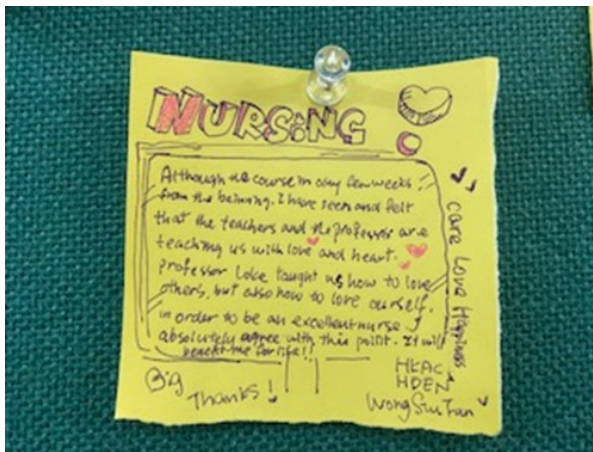 NURSING
Although the course in only few weeks
from the beinning. I have seen and felt
that the teachers and the professor are
teaching us with love and heart.
professor Loke taught us how to love
others, but also how to love ourself.
in order to be an excellent nurse. I
absolutely agree with this point. It will
benefit me for life!!
Big
Thanks!
care Love Happiness
HKAC
HDEN
Wong Siu